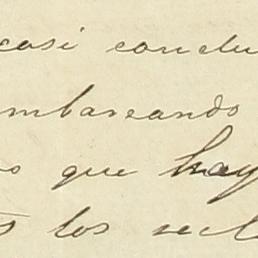 casi conclu
mbarcando
que hay
los recl